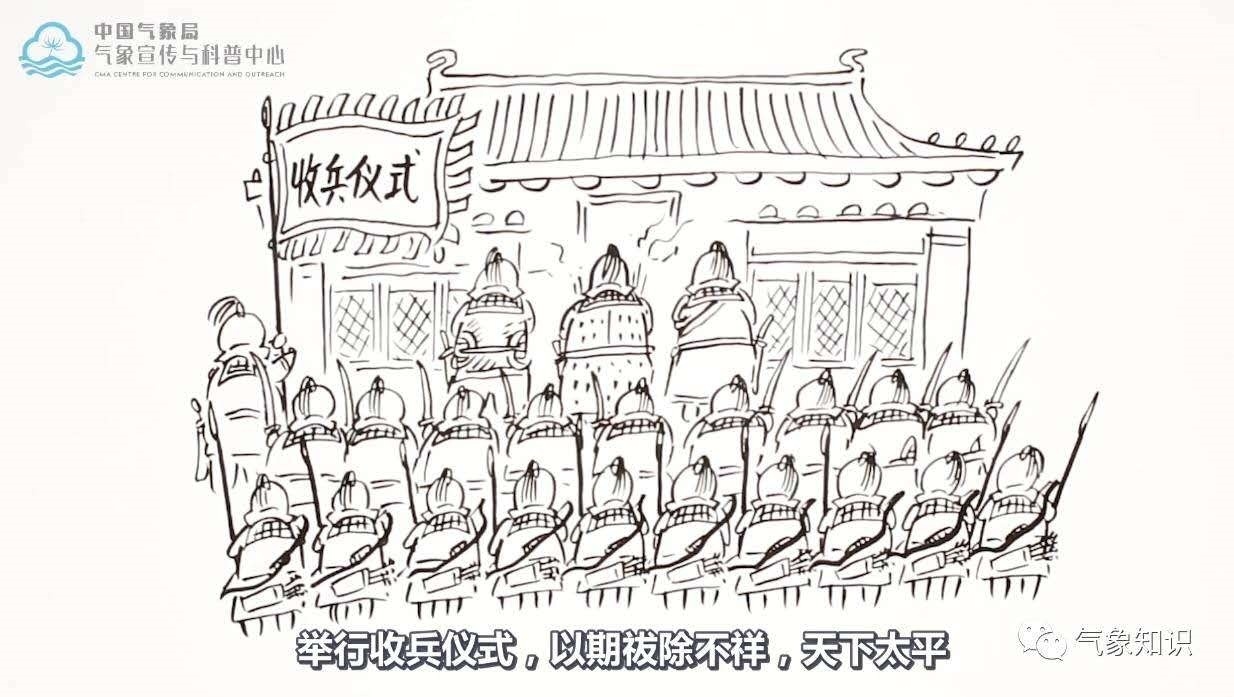 中国气象局
气象宣传与科普中心
CMA CENTRE FOR COMMUNICATION AND OUTREACH
收兵仪式
举行收兵仪式，以期祓除不祥，天下太平
气象知识